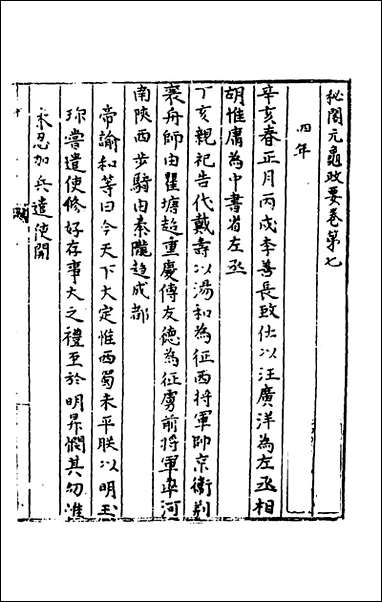 秘閣元龜政要卷第七
四年
辛亥春正月丙戌李善長致仕以汪廣洋為左丞相
胡惟庸為中書省左丞
丁亥親祀告代戴壽以湯和為征西將軍帥京衛荊
襄舟師由瞿塘趋重慶傅友德為征虜前將軍率河
南陝西步騎由秦隴趋成都
帝諭和等曰今天下大定惟西蜀未平朕以明玉
珍嘗遣使修好存事大之禮至於明昇憫其幼沖
未忍加兵遣使開